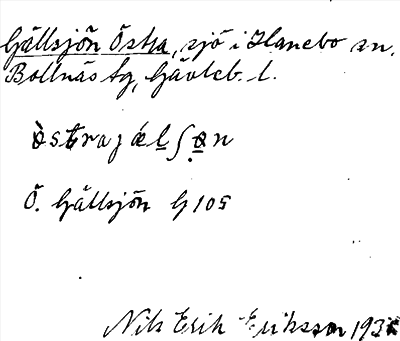 Gällsjön Östra, sjö i Hanebo sn.
Bollnäs tg, Gävleb. l.
Ö. Gällsjön G 105
Nils Erik Eriksson